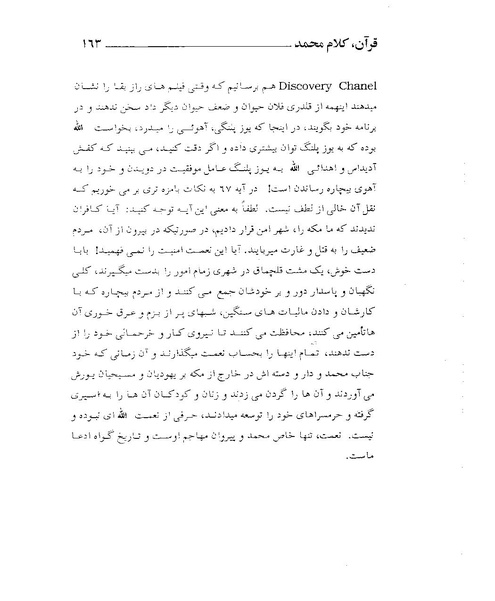 قرآن، کلام محمد ـــــــــــــــــــــ ۱۶۳
Discovery Chanel هم برسانیم که وقتی فیلم های راز بقا را نشان
میدهند اینهمه از قلدری فلان حیوان و ضعف حیوان دیگر داد سخن ندهند و در
برنامه خود بگویند، در اینجا که یوز پلنگی، آهوئی را میدرد، بخواست الله
بوده که به یوز پلنگ توان بیشتری داده و اگر دقت کنید، می بینید که کفش
آدیداس و اهدائی الله به یوز پلنگ عامل موفقیت در دویدن و خود را به
آهوی بیچاره رساندن است! در آیه ۶۷ به نکات بامزه تری بر می خوریم که
نقل آن خالی از لطف نیست. لطفاً به معنی این آیه توجه کنید: آیا کافران
ندیدند که ما مکه را، شهر امن قرار دادیم، در صورتیکه در بیرون از آن، مردم
ضعیف را به قتل و غارت میربایند. آیا این نعمت امنیت را نمی فهمید! بابا
دست خوش، یک مشت قلچماق در شهری زمام امور را بدست میگیرند، کلی
نگهبان و پاسدار دور و بر خودشان جمع می کنند و از مردم بیچاره که با
کارشان و دادن مالیات های سنگین، شبهای پر از بزم و عرق خوری آن
هاتأمین می کنند، محافظت می کنند تا نیروی کار و خرحمالی خود را از
دست ندهند، تمام اینها را بحساب نعمت میگذارند و آن زمانی که خود
جناب محمد و دار و دسته اش در خارج از مکه بر یهودیان و مسیحیان یورش
می آوردند و آن ها را گردن می زدند و زنان و کودکان آن ها را به اسیری
گرفته و حرمسراهای خود را توسعه میدادند، حرفی از نعمت الله ای نبوده و
نیست. نعمت، تنها خاص محمد و پیروان مهاجم اوست و تاریخ گواه ادعا
ماست.